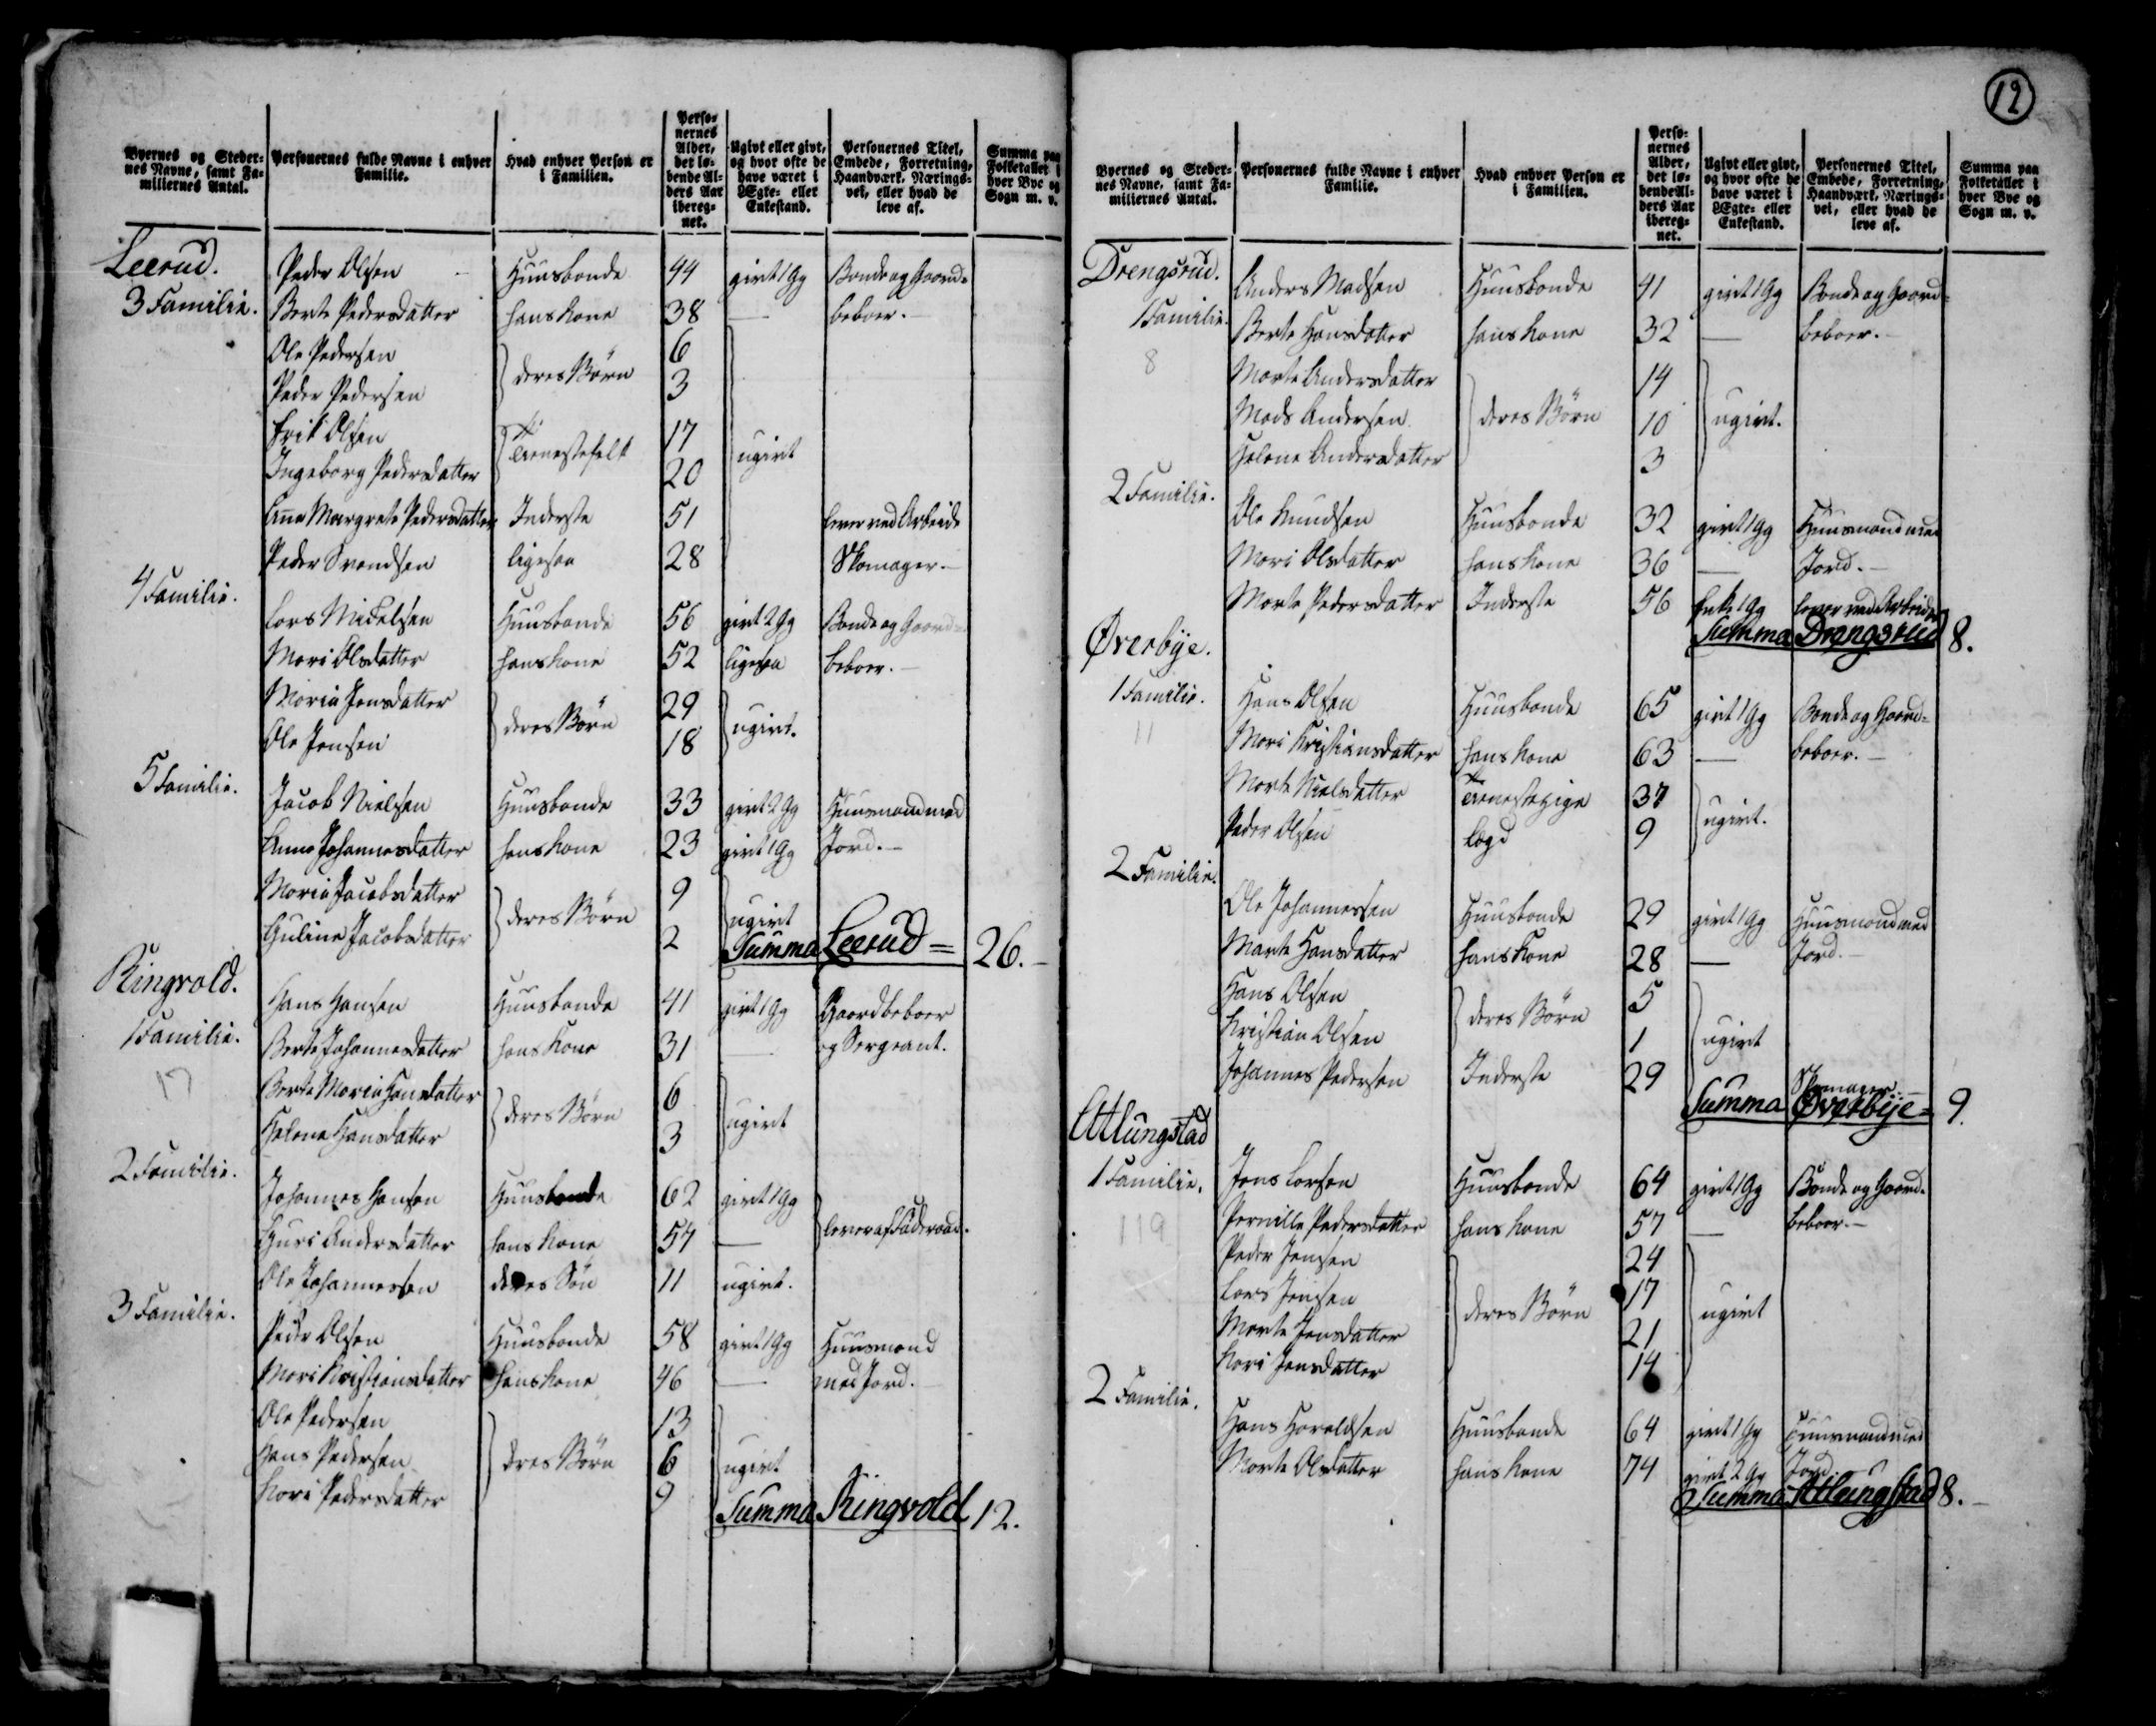 12
Byernes og Steder= Personernes fulde Navne i enhver Hvad enhver Person er Perso=nernes Alder, det lø=bende Al=ders Aar ibereg=net. Ugivt eller givt, og hvor ofte de have været i Ægte= eller Enkestand. Personernes Titel, Embede, Forretning, Haandværk, Nærings=vei, eller hvad de leve af. Summa paa Folketallet i hver Bye og Sogn m. v.
nes Navne, samt Fa=miliernes Antal. Familie. i Familien.
Leerud. Peder Olsen Huusbonde 44 givt 1 Gg Bonde og Gaard=
3 Familie. Berte Pedersdatter hans Kone 38 — beboer.
Ole Pedersen deres Børn 6
Peder Pedersen 3
Erik Olsen Tienestefolk 17 ugivt
Ingeborg Pedersdatter 20
Anne Margrete Pedersdatter Inderste 51 lever ved Arbeide
Peder Svendsen ligesaa 28 Skomager.
4 Familie.
Lars Mickelsen Huusbonde 56 givt 2 Gg Bonde og Gaard=
Mari Olsdatter hans Kone 52 ligesaa beboer.
Maria Jensdatter deres Børn 29 ugivt.
Ole Jensen 18
5 Familie.
Jacob Nielsen Huusbonde 33 givt 2 Gg Huusmand med
Anne Johannesdatter hans Kone 23 givt 1 Gg Jord.
Maria Jacobsdatter deres Børn 9 ugivt
Guline Jacobsdatter 2 Summa Leerud = 26.
Ringvold.
Hans Hansen Huusbonde 41 givt 1 Gg Gaardbeboer
1 Familie. Berte Johannesdatter hans Kone 31 — og Sergeant.
17 Berte Maria Hansdatter deres Børn 6 ugivt
Helene Hansdatter 3
2 Familie.
Johannes Hansen Huusbonde 62 givt 1 Gg lever af Føderaad.
Guri Andersdatter hans Kone 54 —
Ole Johannessen deres Søn 11 ugivt.
3 Familie.
Peder Olsen Huusbonde 58 givt 1 Gg Huusmand
Mari Kristiansdatter hans Kone 46 — med Jord.
Ole Pedersen deres Børn 13 ugivt
Hans Pedersen 6
Kari Pedersdatter 9
Summa Ringvold 12.
Byernes og Steder=nes Navne, samt Fa=miliernes Antal. Personernes fulde Navne i enhver Familie. Hvad enhver Person er i Familien. Perso=nernes Alder, det lø=bende Al=ders Aar ibereg=net. Ugivt eller givt, og hvor ofte de have været i Ægte= eller Enkestand. Personernes Titel, Embede, Forretning, Haandværk, Nærings=vei, eller hvad de leve af. Summa paa Folketallet i hver Bye og Sogn m. v.
Drengsrud.
Anders Madsen Huusbonde 41 givt 1 Gg Bonde og Gaard=
1 Familie. Berte Hansdatter hans Kone 32 — beboer.
8 Marte Andersdatter deres Børn 14 ugivt.
Mads Andersen 10
Helene Andersdatter 3
2 Familie.
Ole Knudsen Huusbonde 32 givt 1 Gg Huusmand med
Mari Olsdatter hans Kone 36 — Jord.
Marte Pedersdatter Inderste 56 Enke 1 Gg lever ved Arbeide
Summa Drengsrud 8.
Øverbye.
1 Familie. Hans Olsen Huusbonde 65 givt 1 Gg Bonde og Gaard=
11 Mari Kristiansdatter hans Kone 63 — beboer.
Marte Nielsdatter Tienestepige 37 ugivt.
Peder Olsen Lægd 9
2 Familie.
Ole Johannessen Huusbonde 29 givt 1 Gg Huusmand med
Marte Hansdatter hans Kone 28 — Jord.
Hans Olsen deres Børn 5 ugivt
Kristian Olsen 1
Johannes Pedersen Inderste 29 Skomager
Summa Øverbye = 9.
Atlungstad
1 Familie. Jens Larsen Huusbonde 64 givt 1 Gg Bonde og Gaard=
119 Pernille Pedersdatter hans Kone 57 — beboer.
Peder Jensen deres Børn 24 ugivt
Lars Jensen 17
Marte Jensdatter 21
Kari Jensdatter 14
2 Familie.
Hans Haraldsen Huusbonde 64 givt 1 Gg Huusmand med
Marte Olsdatter hans Kone 74 givt 2 Gg Jord.
Summa Atlungstad 8.